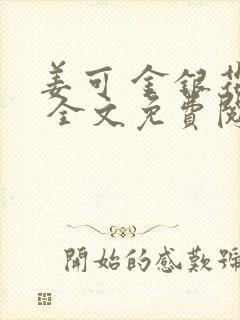 姜可 金銀花
全文免費閱
開始的感歎號